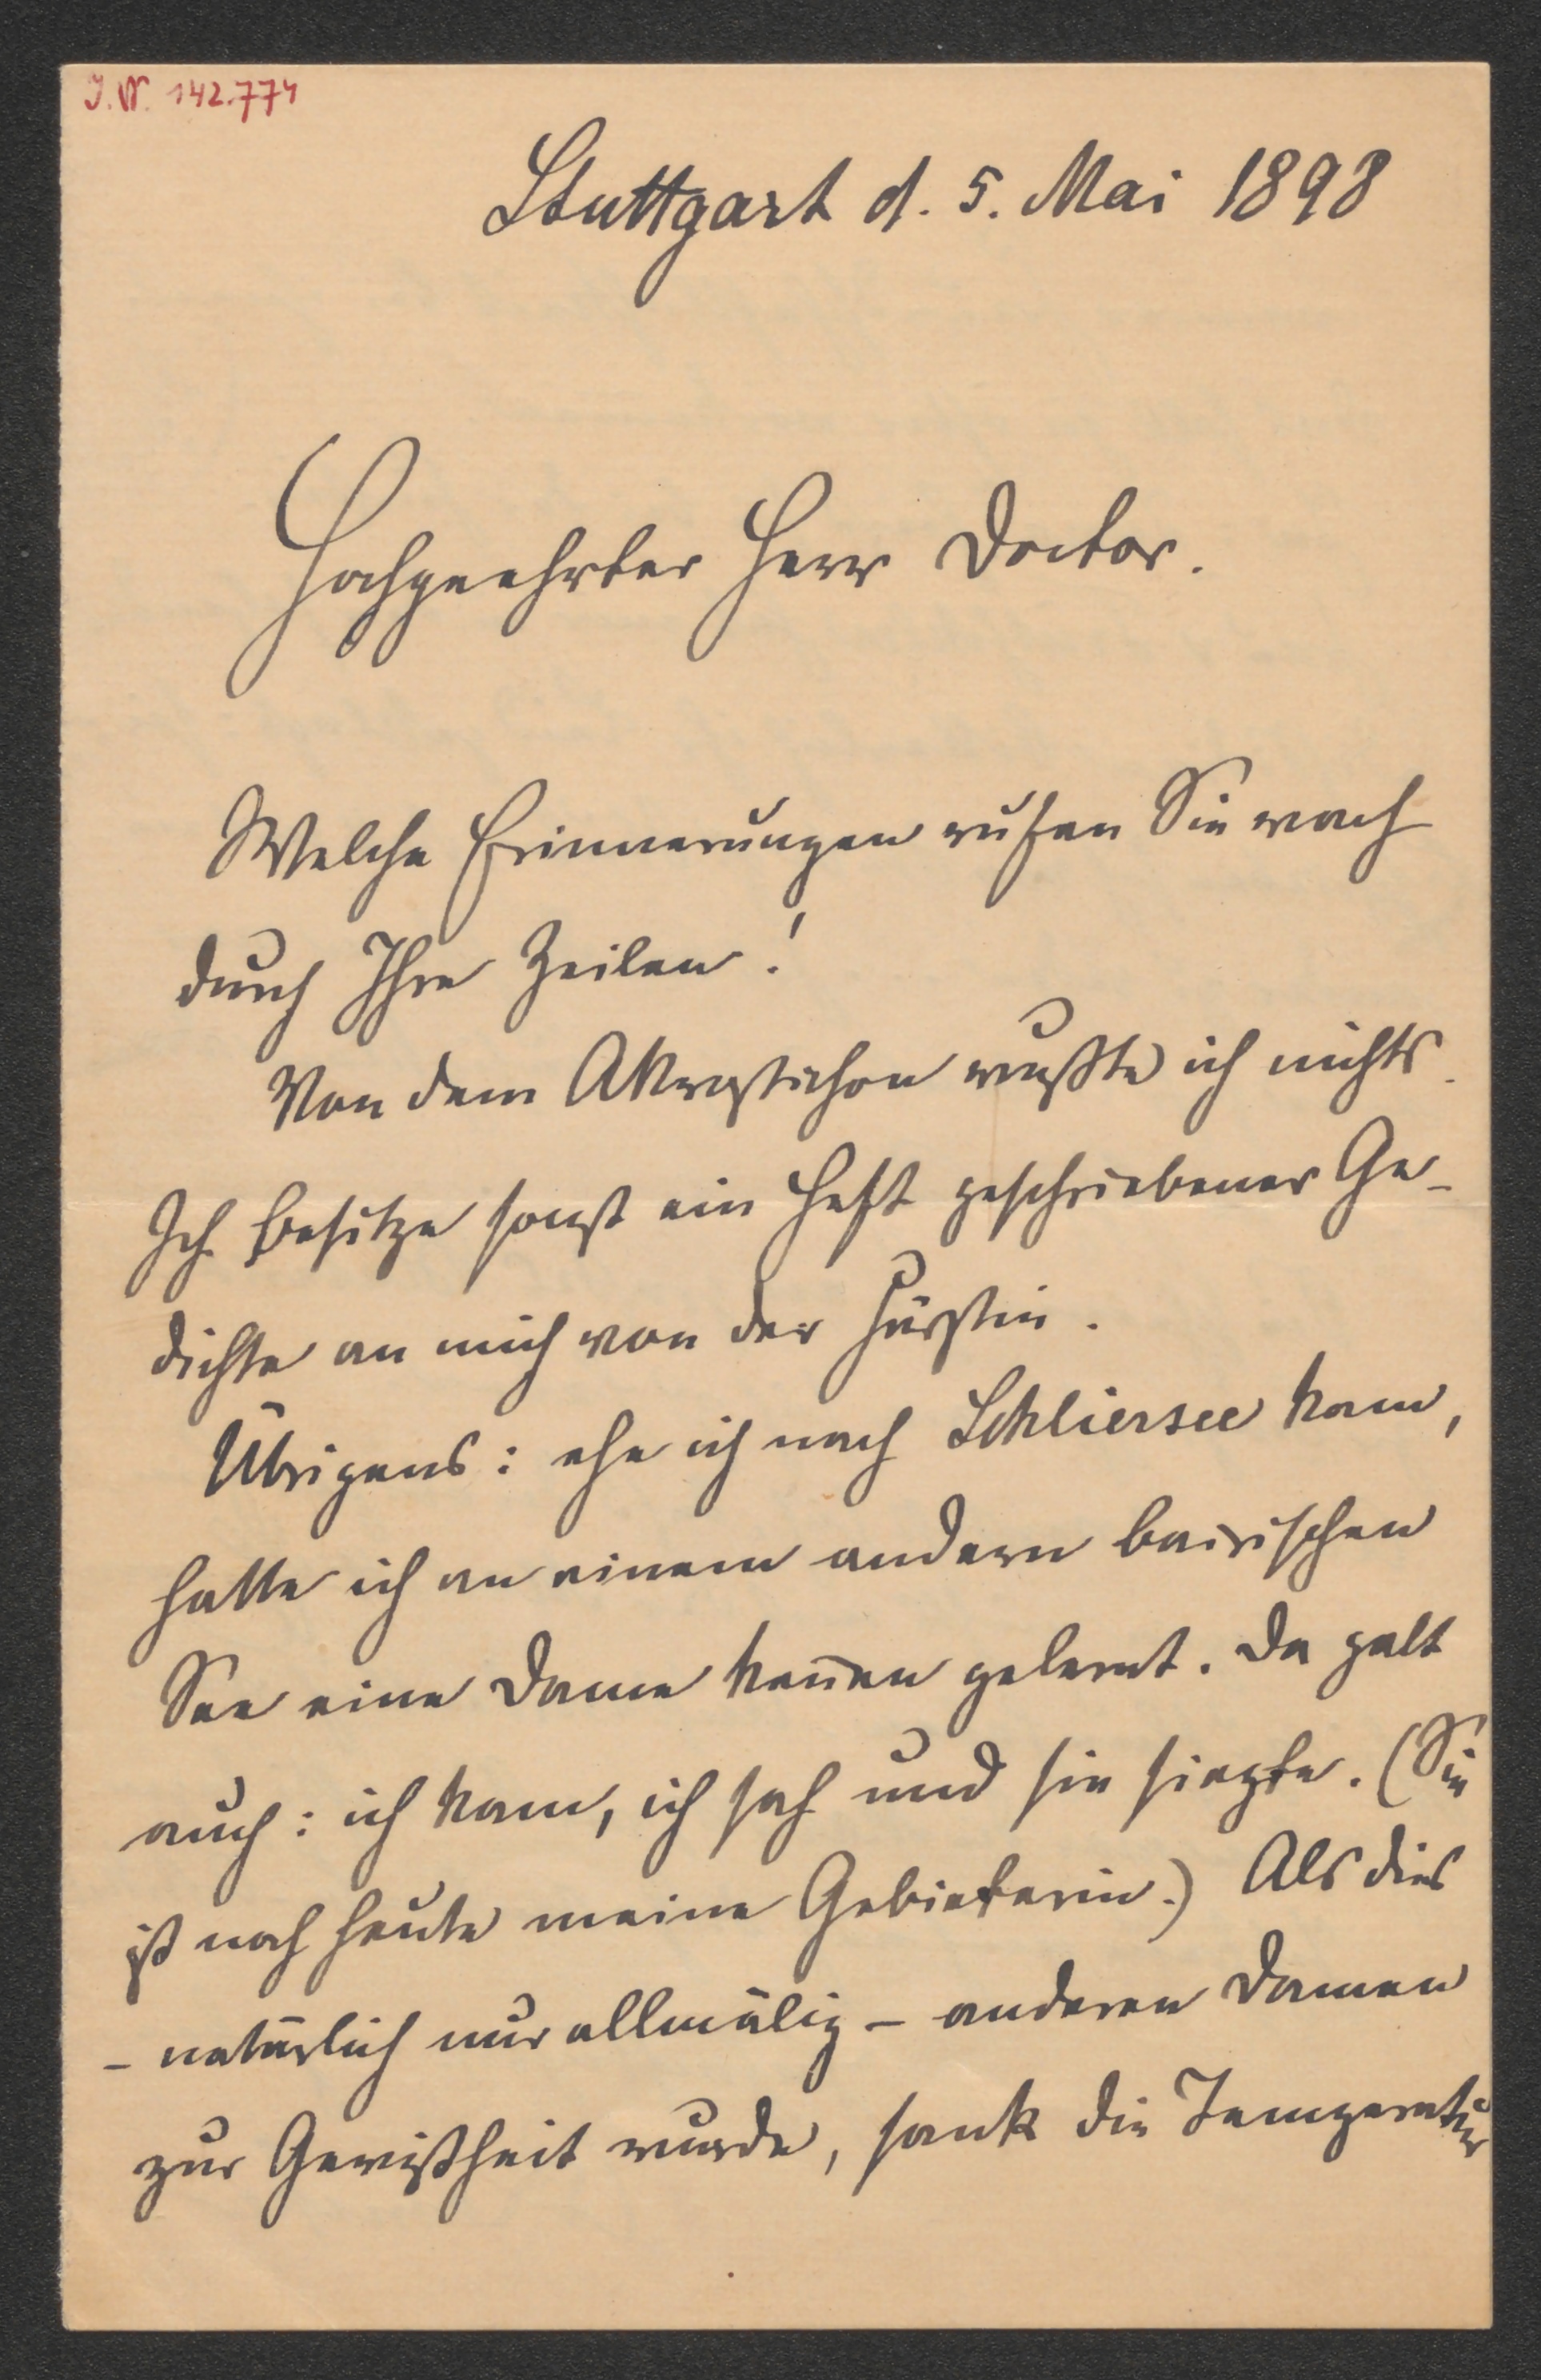 J.N. 142.774
Stuttgart d. 5. Mai 1898
Hochgeehrter Herr Doctor.
Welche Erinnerungen rufen Sie wach
durch Ihre Zeilen!
Von dem Akrostichon wußte ich nichts.
Ich besitze sonst ein Heft geschriebener Ge-
dichte an mich von der Fürstin.
Übrigens: ehe ich nach Schliersee kam,
hatte ich an einem andern bairischen
See eine Dame kennen gelernt. Da galt
auch: ich kam, ich sah und sie siegte. (Sie
ist noch heute meine Gebieterin.) Als dies
- natürlich nur allmälig - anderen Damen
zur Gewißheit wurde, sank die Temperatur